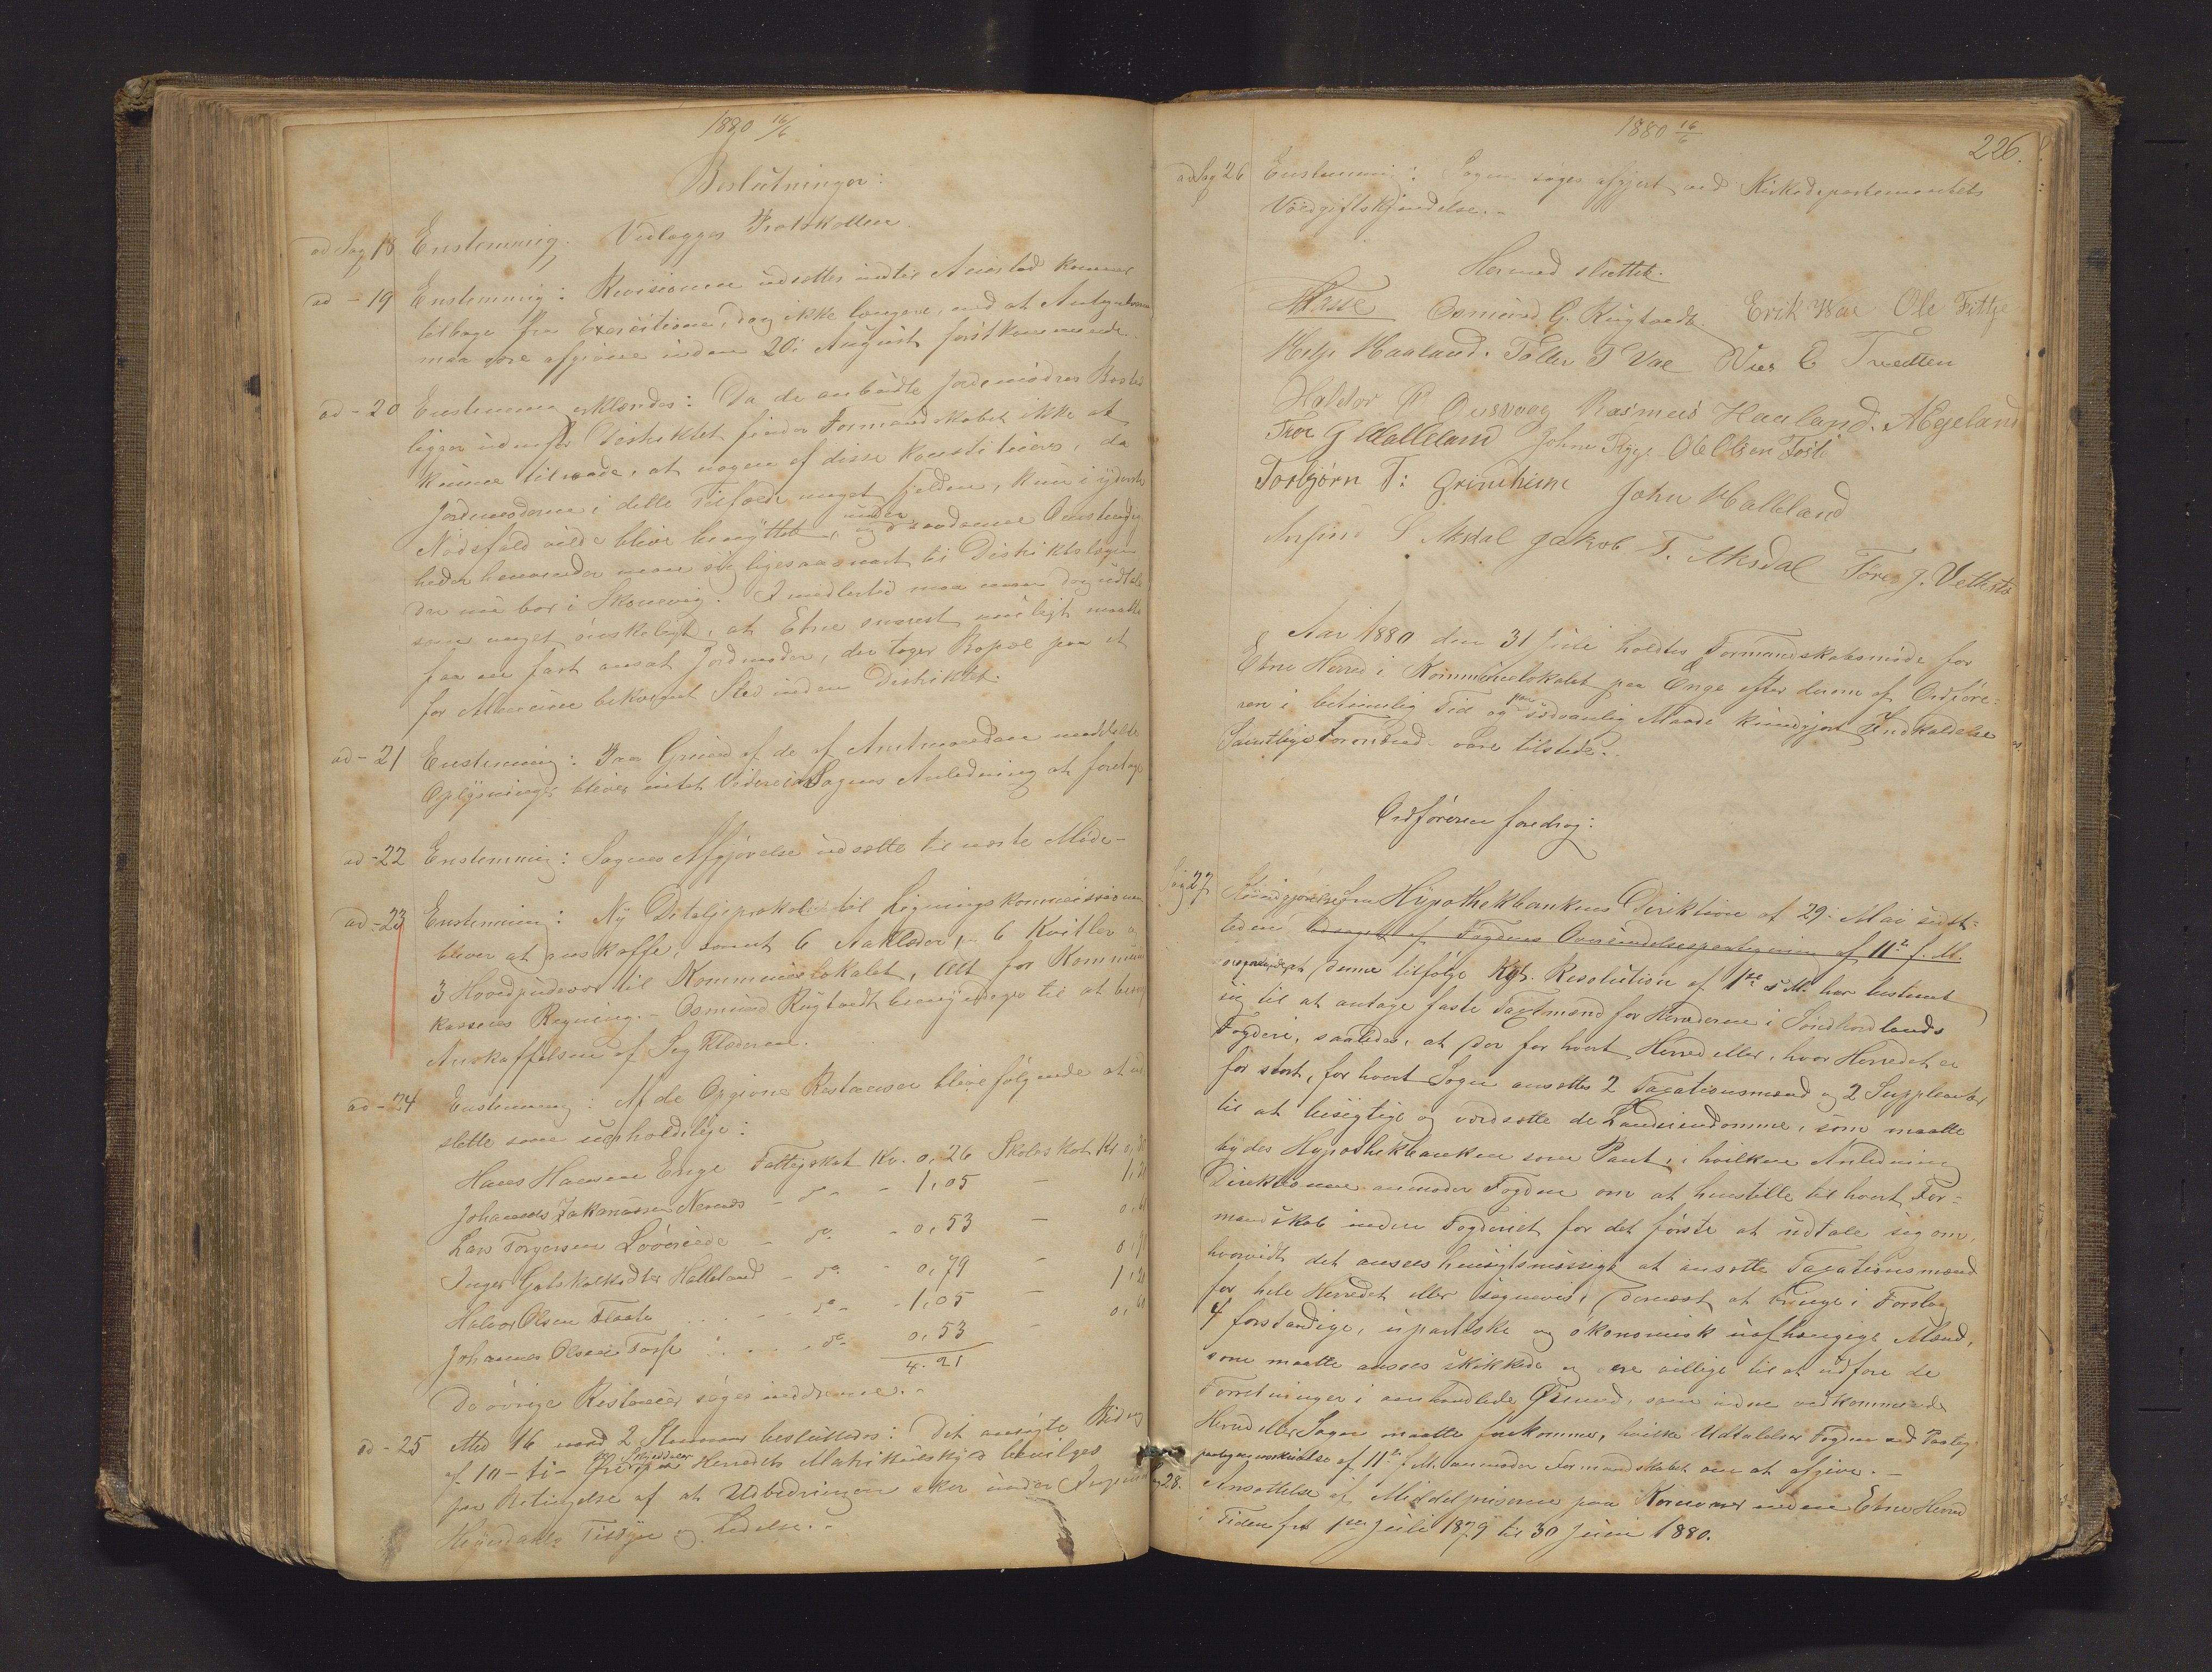 1880 16/6
Beslutninger:
ad Sag 18 Enstemmig. Vedlægges Protokollen.
ad - 19 Enstemmig: Revisionen udsættes indtil Aarstad kommer
tilbage fra Exersitien, dog ikke længere, end at Antegnelserne
maa være afgivne inden 20. August førstkommende.
ad - 20 Enstemmig erklæredes: Da de anbudte Jordemødres Bosted
ligger udenfor Distriktet finder Formandskabet ikke at
kunne tilraade, at nogen af disse konstitueres, da
Jordemoderen i dette Tilfælde meget sjelden, kun i yderste
Nødsfald vilde blive benyttet, under saadanne Omstændig
heder henvender man sig ligesaasnart til Distriktslægen
der nu bor i Skonevig. Imidlertid maa man dog udtale
som meget ønskeligt, at Etne snarest muligt maatte
faa en fast ansat Jordmoder, der tager Bopæl paa et
for Almuen bekvemt Sted inden Distriktet.
ad - 21 Enstemmig: Paa Grund af de af Amtmanden meddelte
Oplysninger bliver intet Videre i Sagens Anledning at foretage
ad - 22 Enstemmig: Sagens Afgjørelse udsættes til næste Møde -
ad - 23 Enstemmig: Ny Detaljeprotokol til Ligningskommissionen
bliver at anskaffe, samt 6 Aaklæder, 6 Kvitler og
3 Hovedpuder til Kommunelokalet, Alt for Kommune
kassens Regning. - Osmund Rugtvedt bemyndiges til at besørge
Anskaffelsen af Sengklæderne.
ad - 24 Enstemmig: Af de Opgivne Restancer blive følgende at ud
slette som uerholdelige:
Hans Hansen Enge Fattigskat Kr. 0,26 Skoleskat Kr 0,
Johannes Zakariassen Nernæs - do - 1,05 - 1,20
Lars Torgersen - do - 0,53 - 0,60
Inger Gotskalksdtr Halleland - do - 0,79 - 0,9
Halvor Olsen - do - 1,05 - 1,20
Johannes Olsen - do - 0,53 - 0,60
4.21
De øvrige Restancer søges inddrevne. -
ad - 25 Med 16 mod 2 Stemmer besluttedes: Det ansøgte Bidrag
af 10 - ti - Herredets Matrikulskyld bevilges
paa Betingelse af at Udbedringen sker under Ingeniør
Tilsyn og Ledelse. -
1880 16/6
226.
ad Sag 26 Enstemmig: Sagen søges afgjort ved Kirkedepartementets
Voldgiftskjendelse. -
Hermed sluttet.
Osmund G. Rugtvedt. Erik Vae Ole Fittje
Helje Haaland. Tollev T Vae Nies E Tvedten
Haldor P Ousvaag Rasmus Haaland. AEgeland
Tore G Halleland Johne Frygge - Ole Olsen
Torbjørn T: Grindheim John Halleland
S Aksdal Jakob T. Aksdal Tore J. Vethsto
Aar 1880 den 31 Juli holdtes Formandskabsmøde for
Etne Herred i Kommunelokalet paa Enge efter derom af Ordføre-
ren i betimelig Tid og paa sædvanlig Maade kundgjort Indkaldelse
Samtlige Formænd vare tilstede. -
Ordføreren foredrog:
Sag 27 Kundgjørelse fra Hypothekbankens Direktion af 29. Mai sidst-
leden ledsaget af Fogdens Oversendelsespaategning af 11te f. M.
angaaende at denne tilfølge Kgl. Resolution af 1ste s M. har bestemt
sig til at antage faste Taxtmænd for Herrederne i Søndhordlands
Fogderi, saaledes, at der for hvert Herred eller, hvor Herredet er
for stort, for hvert Sogn ansættes 2 Taxationsmænd og 2 Suppleanter
til at besigtige og værdsætte de Landeiendomme, som maatte
bydes Hypothekbanken som Pant, i hvilken Anledning
Direktionen anmoder Fogden om at henstille til hvert For-
mandskab inden Fogderiet for det første at udtale sig om,
hvorvidt det ansees hensigtsmæssigt at ansætte Taxationsmænd
for hele Herredet eller sognevis, dernæst at bringe i Forslag
4 forstandige, upartiske og økonomisk uafhængige Mænd,
som maatte ansees skikkede og ere villige til at udføre de
Forretninger i omhandlede Øiemed, som inden vedkommende
Herred eller Sogn maatte forekomme, hvilke Udtalelser Fogden ved Paateg-
af 11te f. M. anmoder Formandskabet om at afgive. -
28. Ansættelse af Middelpriserne paa Kornvarer inden Etne Herred
i Tiden fra 1ste Juli 1879 til 30 Juni 1880.